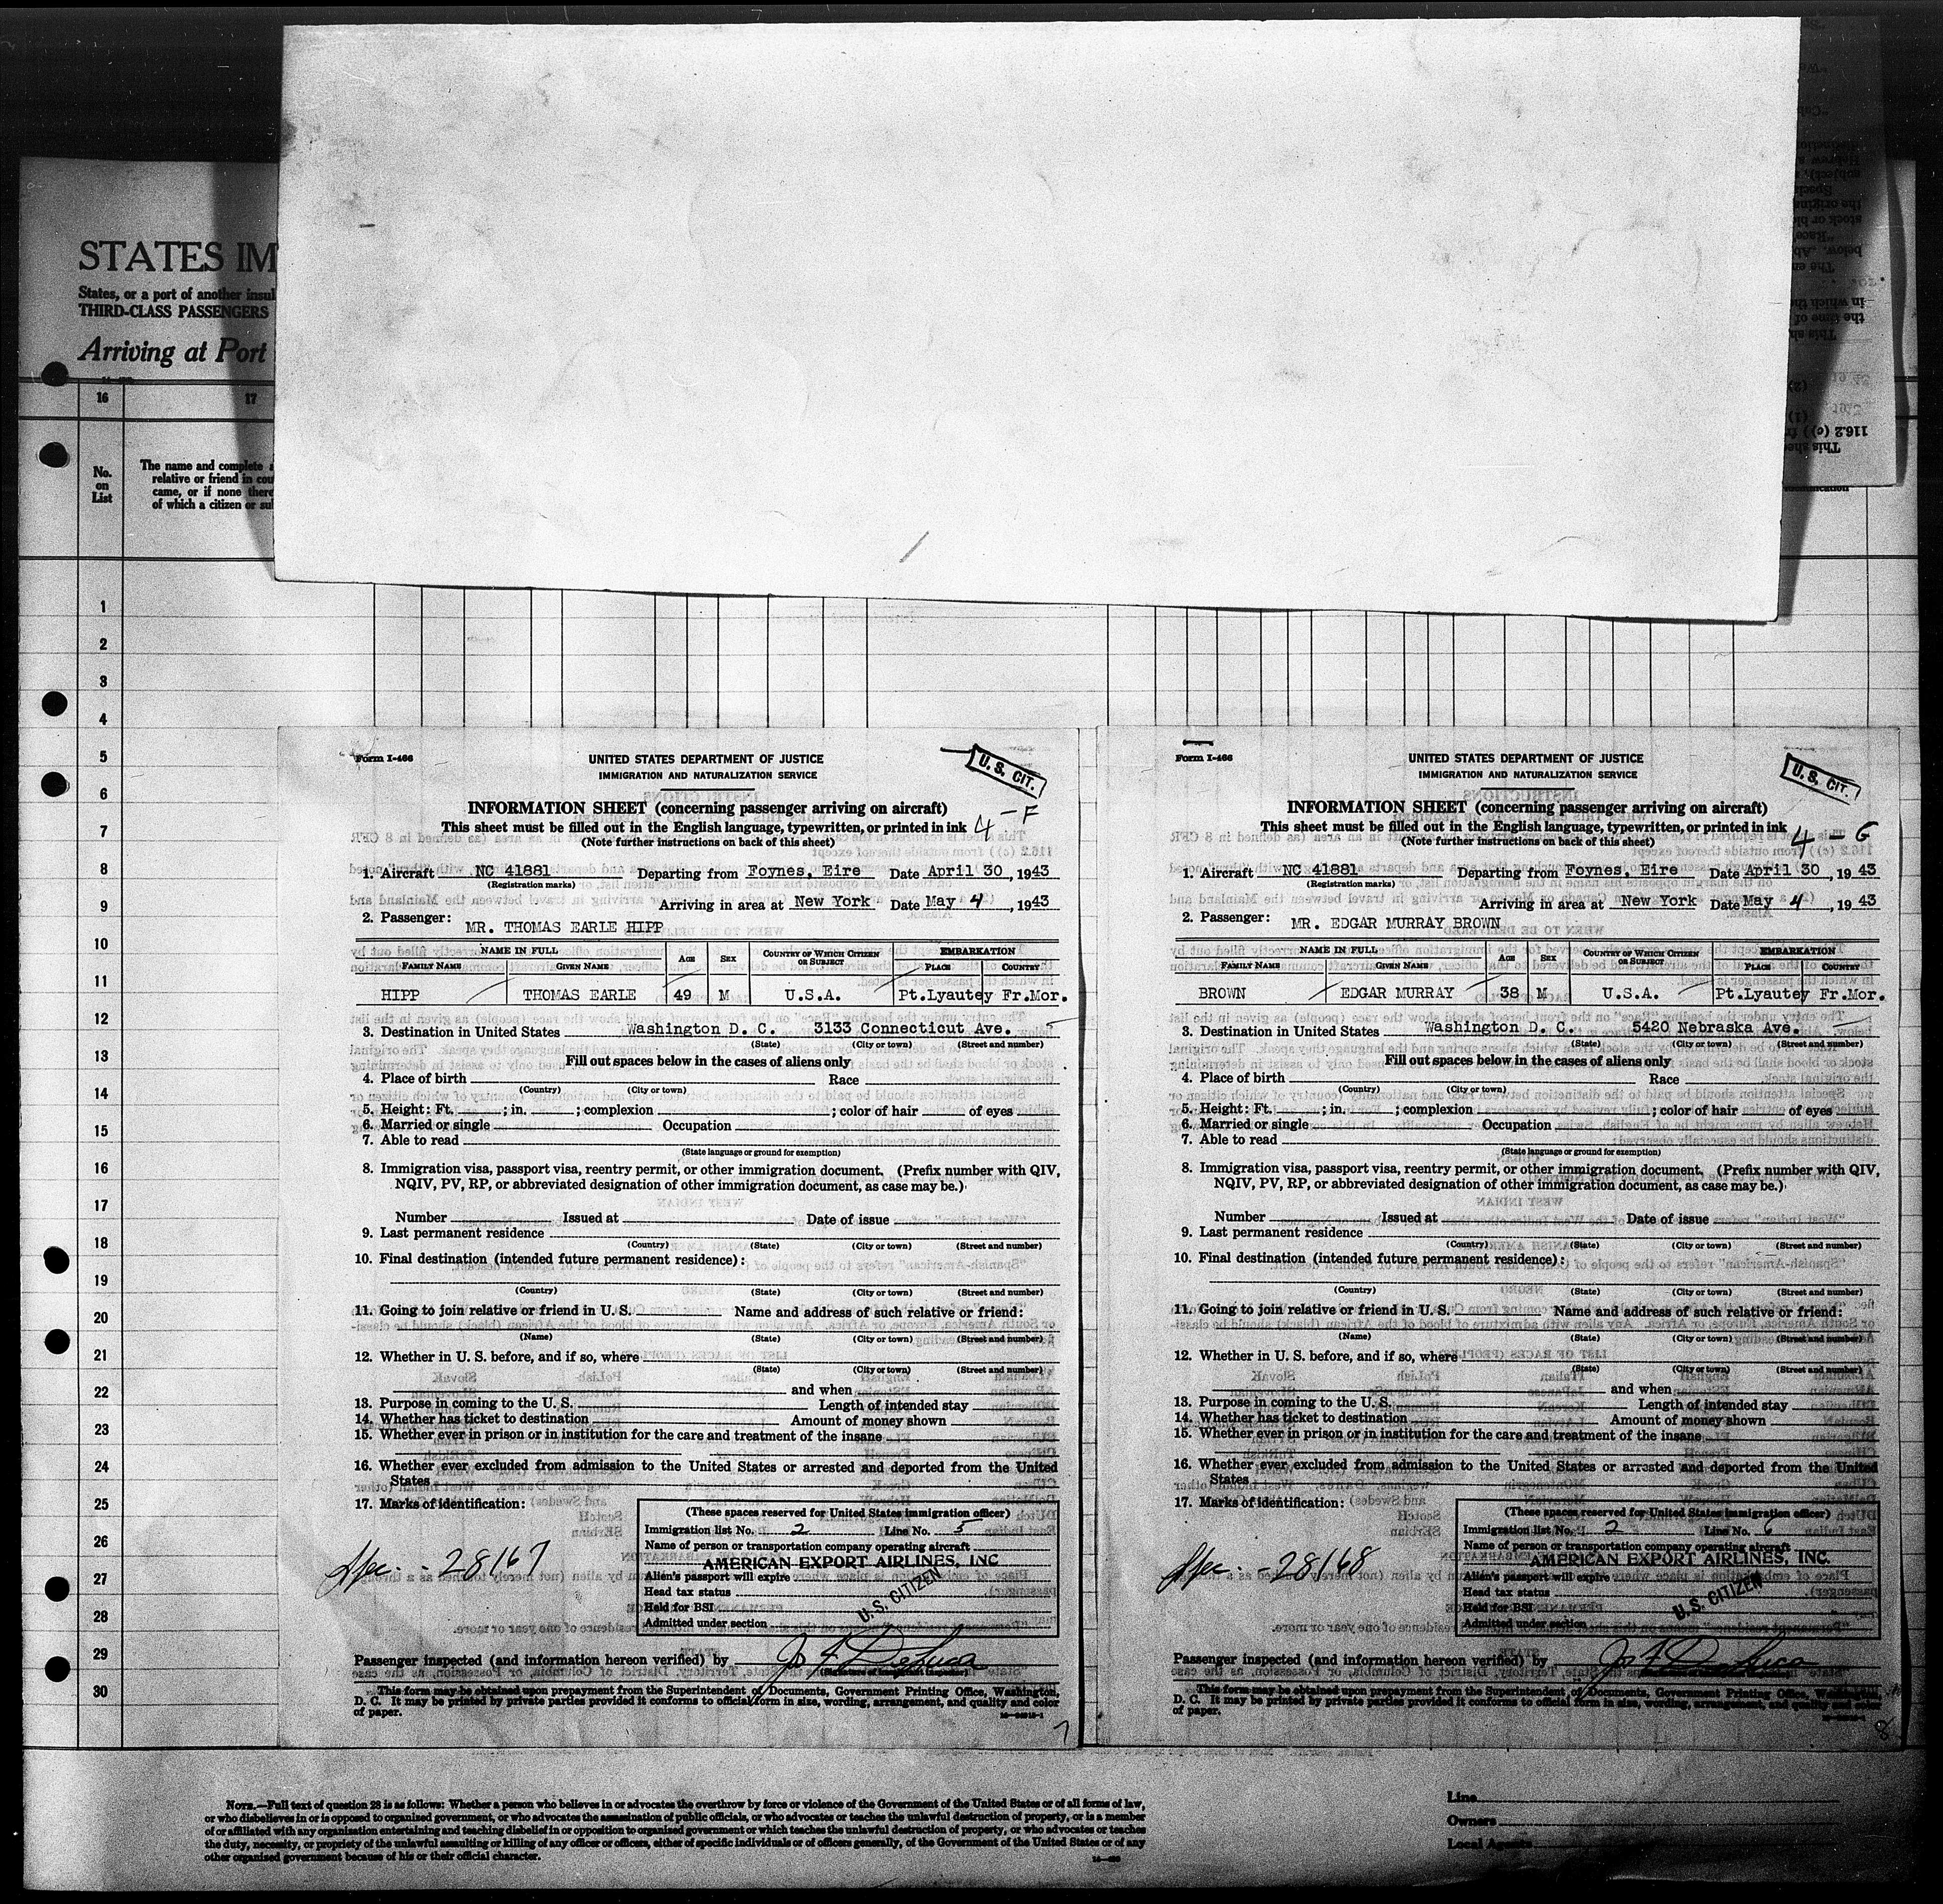 STATES IM
States, or a port of another insul
THIRD-CLASS PASSENGERS
Arriving at Port
16 17
No. on List
The name and complete a
relative or friend in cou
came, or if none there
of which a citizen or su
1
2
3
4
5
6
7
8
9
10
11
12
13
14
15
16
17
18
19
20
21
22
23
24
25
26
27
28
29
30
Form I-466
UNITED STATES DEPARTMENT OF JUSTICE
IMMIGRATION AND NATURALIZATION SERVICE
U. S. CIT.
INFORMATION SHEET (concerning passenger arriving on aircraft)
4 - F
This sheet must be filled out in the English language, typewritten, or printed in ink
(Note further instructions on back of this sheet)
1. Aircraft NC 41881 Departing from Foynes, Eire Date April 30, 1943
(Registration marks)
Arriving in area at New York Date May 4, 1943
2. Passenger:
MR. THOMAS EARLE HIPP
NAME IN FULL AGE SEX COUNTRY OF WHICH CITIZEN OR SUBJECT EMBARKATION
FAMILY NAME GIVEN NAME PLACE COUNTRY
HIPP THOMAS EARLE 49 M U.S.A. Pt.Lyautey Fr.Mor.
3. Destination in United States Washington D. C. 3133 Connecticut Ave.
(State) (City or town) (Street and number)
Fill out spaces below in the cases of aliens only
4. Place of birth Race
(Country) (City or town)
5. Height: Ft. ; in. ; complexion ; color of hair of eyes
6. Married or single Occupation
7. Able to read
(State language or ground for exemption)
8. Immigration visa, passport visa, reentry permit, or other immigration document. (Prefix number with QIV,
NQIV, PV, RP, or abbreviated designation of other immigration document, as case may be.)
Number Issued at Date of issue
9. Last permanent residence
(Country) (State) (City or town) (Street and number)
10. Final destination (intended future permanent residence):
(Country) (State) (City or town) (Street and number)
11. Going to join relative or friend in U. S. Name and address of such relative or friend:
(Name) (State) (City or town) (Street and number)
12. Whether in U. S. before, and if so, where
(State) (City or town) (Street and number)
and when
13. Purpose in coming to the U. S. Length of intended stay
14. Whether has ticket to destination Amount of money shown
15. Whether ever in prison or in institution for the care and treatment of the insane
16. Whether ever excluded from admission to the United States or arrested and deported from the United
States
17. Marks of identification:
(These spaces reserved for United States immigration officer)
Immigration list No. 2 Line No. 5
Name of person or transportation company operating aircraft
AMERICAN EXPORT AIRLINES, INC
Alien's passport will expire
Head tax status
Held for BSI
Admitted under section
U. S. CITIZEN
28167
Passenger inspected (and information hereon verified) by
(Signature of immigrant inspector)
This form may be obtained upon prepayment from the Superintendent of Documents, Government Printing Office, Washington,
D. C. It may be printed by private parties provided it conforms to official form in size, wording, arrangement, and quality and color
of paper.
7
Form I-466
UNITED STATES DEPARTMENT OF JUSTICE
IMMIGRATION AND NATURALIZATION SERVICE
U. S. CIT.
INFORMATION SHEET (concerning passenger arriving on aircraft)
This sheet must be filled out in the English language, typewritten, or printed in ink
4 - G
(Note further instructions on back of this sheet)
1. Aircraft NC 41881 Departing from Foynes, Eire Date April 30, 1943
(Registration marks)
Arriving in area at New York Date May 4, 1943
2. Passenger:
MR. EDGAR MURRAY BROWN
NAME IN FULL AGE SEX COUNTRY OF WHICH CITIZEN OR SUBJECT EMBARKATION
FAMILY NAME GIVEN NAME PLACE COUNTRY
BROWN EDGAR MURRAY 38 M U.S.A. Pt.Lyautey Fr.Mor.
3. Destination in United States Washington D. C. 5420 Nebraska Ave.
(State) (City or town) (Street and number)
Fill out spaces below in the cases of aliens only
4. Place of birth Race
(Country) (City or town)
5. Height: Ft. ; in. ; complexion ; color of hair of eyes
6. Married or single Occupation
7. Able to read
(State language or ground for exemption)
8. Immigration visa, passport visa, reentry permit, or other immigration document. (Prefix number with QIV,
NQIV, PV, RP, or abbreviated designation of other immigration document, as case may be.)
Number Issued at Date of issue
9. Last permanent residence
(Country) (State) (City or town) (Street and number)
10. Final destination (intended future permanent residence):
(Country) (State) (City or town) (Street and number)
11. Going to join relative or friend in U. S. Name and address of such relative or friend:
(Name) (State) (City or town) (Street and number)
12. Whether in U. S. before, and if so, where
(State) (City or town) (Street and number)
and when
13. Purpose in coming to the U. S. Length of intended stay
14. Whether has ticket to destination Amount of money shown
15. Whether ever in prison or in institution for the care and treatment of the insane
16. Whether ever excluded from admission to the United States or arrested and deported from the United
States
17. Marks of identification:
(These spaces reserved for United States immigration officer)
Immigration list No. 2 Line No. 6
Name of person or transportation company operating aircraft
AMERICAN EXPORT AIRLINES, INC.
Alien's passport will expire
Head tax status
Held for BSI
Admitted under section
U. S. CITIZEN
28168
Passenger inspected (and information hereon verified) by
This form may be obtained upon prepayment from the Superintendent of Documents, Government Printing Office, Washington,
D. C. It may be printed by private parties provided it conforms to official form in size, wording, arrangement, and quality and color
of paper.
8
NOTE.—Full text of question 28 is as follows: Whether a person who believes in or advocates the overthrow by force or violence of the Government of the United States or of all forms of law,
or who disbelieves in or is opposed to organized government, or who advocates the assassination of public officials, or who advocates or teaches the unlawful destruction of property, or is a member
of or affiliated with any organization entertaining and teaching disbelief in or opposition to organized government or which teaches the unlawful destruction of property, or who advocates or teaches
the duty, necessity, or propriety of the unlawful assaulting or killing of any officer or officers, either of specific individuals or of officers generally, of the Government of the United States or of any
other organized government because of his or their official character.
Line
Owners
Local Agents